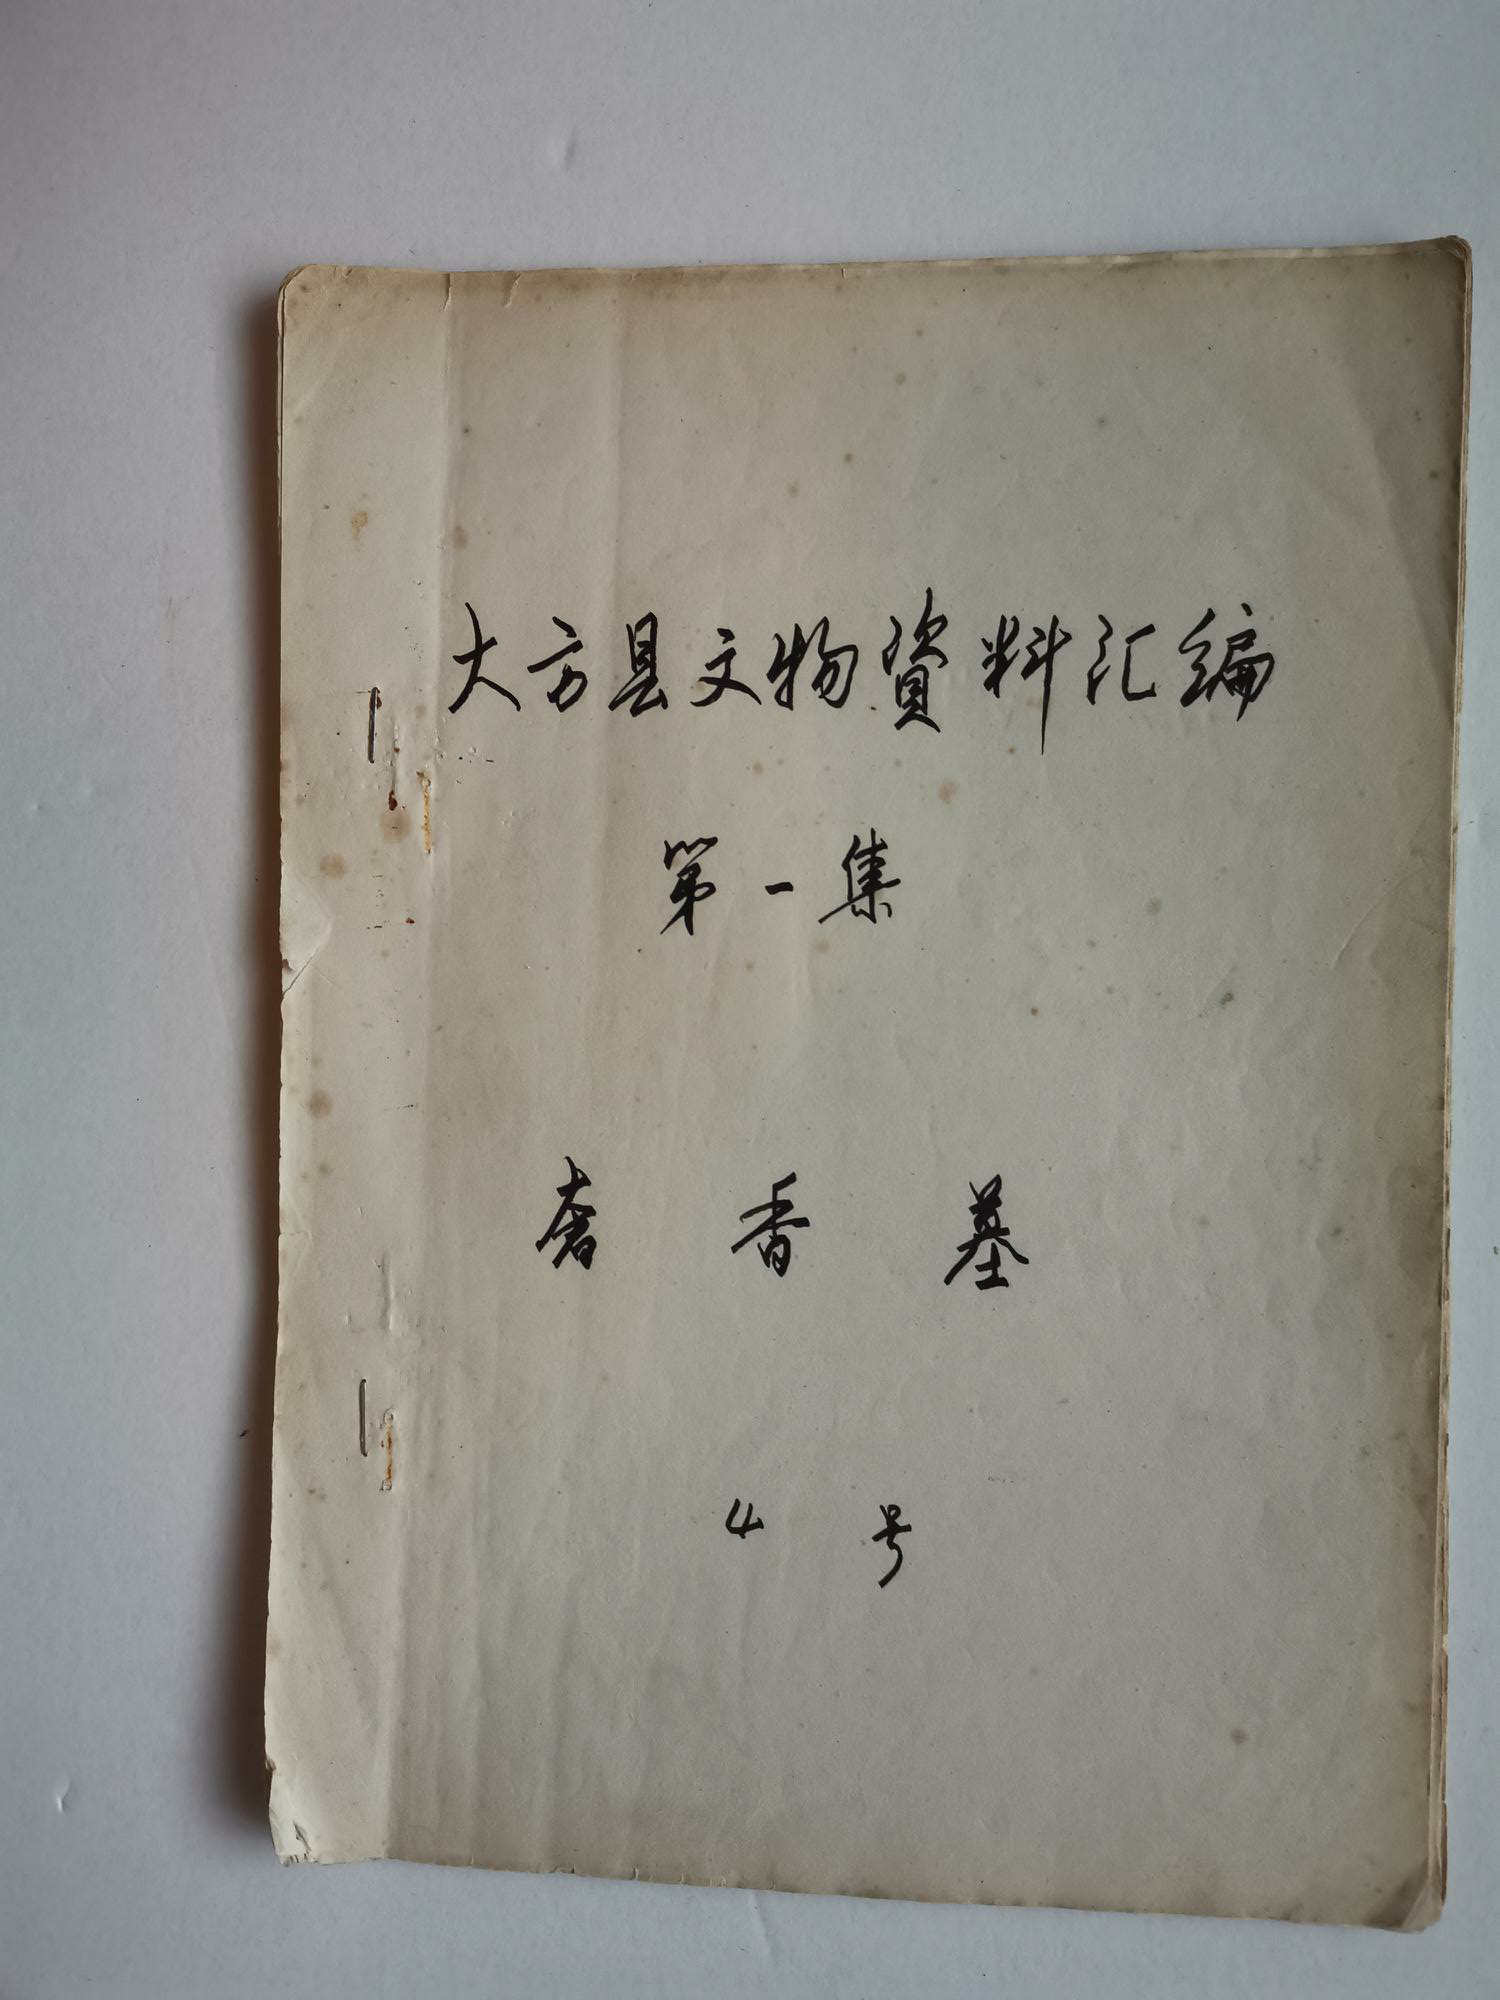 大方县文物資料汇编
第一集
奢香墓
4号